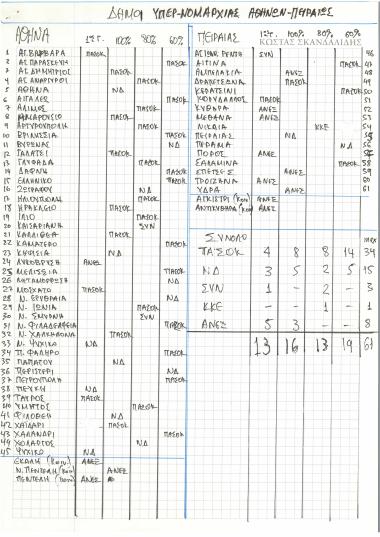 ΔΗΜΟΙ ΥΠΕΡ-ΝΟΜΑΡΧΙΑΣ ΑΘΗΝΩΝ-ΠΕΙΡΑΙΩΣ
ΑΘΗΝΑ 1 100% 80% 60%
1 ΑΓ. ΒΑΡΒΑΡΑ ΠΑΣΟΚ
2 ΑΓ. ΠΑΡΑΣΚΕΥΗ ΠΑΣΟΚ
3 ΑΓ. ΔΗΜΗΤΡΙΟΣ ΠΑΣΟΚ
4 ΑΓ. ΑΝΑΡΓΥΡΟΙ ΠΑΣΟΚ
5 ΑΘΗΝΑ ΝΔ
6 ΑΙΓΑΛΕΩ ΠΑΣΟΚ
7 ΑΛΙΜΟΣ ΠΑΣΟΚ
8 ΠΑΣΟΚ
9 ΑΡΓΥΡΟΥΠΟΛΗ ΠΑΣΟΚ
10 ΒΡΙΛΗΣΣΙΑ ΝΔ
11 ΒΥΡΩΝΑΣ ΝΔ
12 ΓΑΛΑΤΣΙ ΠΑΣΟΚ
13 ΓΛΥΦΑΔΑ ΠΑΣΟΚ
14 ΔΑΦΝΗ ΠΑΣΟΚ
15 ΕΛΛΗΝΙΚΟ ΠΑΣΟΚ
16 ΖΩΓΡΑΦΟΥ ΝΔ
17 ΗΛΙΟΥΠΟΛΗ ΠΑΣΟΚ
18 ΗΡΑΚΛΕΙΟ ΠΑΣΟΚ
19 ΙΛΙΟ ΠΑΣΟΚ
20 ΚΑΙΣΑΡΙΑΝΗ ΣΥΝ
21 ΚΑΛΛΙΘΕΑ ΠΑΣΟΚ
22 ΚΑΜΑΤΕΡΟ ΠΑΣΟΚ
23 ΚΗΦΙΣΙΑ ΝΔ
24 ΛΥΚΟΒΡΥΣΗ ΑΝΕΞ
25 ΜΕΛΙΣΣΙΑ ΠΑΣΟΚ
26 ΜΕΤΑΜΟΡΦΩΣΗ ΝΔ
27 ΜΟΣΧΑΤΟ ΠΑΣΟΚ
28 Ν. ΕΡΥΘΡΑΙΑ ΝΔ
29 Ν. ΙΩΝΙΑ ΠΑΣΟΚ
30 Ν. ΣΜΥΡΝΗ ΣΥΝ
31 Ν. ΦΙΛΑΔΕΛΦΕΙΑ ΠΑΣΟΚ
32 Ν. ΧΑΛΚΗΔΟΝΑ ΠΑΣΟΚ
33 Ν. ΨΥΧΙΚΟ ΝΔ
34 Π. ΦΑΛΗΡΟ ΠΑΣΟΚ
35 ΠΑΠΑΓΟΥ ΝΔ
36 ΠΕΡΙΣΤΕΡΙ ΝΔ
37 ΠΕΤΡΟΥΠΟΛΗ ΠΑΣΟΚ
38 ΠΕΥΚΗ ΝΔ
39 ΤΑΥΡΟΣ ΠΑΣΟΚ
40 ΥΜΗΤΤΟΣ ΠΑΣΟΚ
41 ΦΙΛΟΘΕΗ ΝΔ
42 ΧΑΪΔΑΡΙ ΠΑΣΟΚ
43 ΧΑΛΑΝΔΡΙ ΠΑΣΟΚ
44 ΧΟΛΑΡΓΟΣ ΝΔ
45 ΨΥΧΙΚΟ ΝΔ
ΕΚΑΛΗ (Κοιν.) ΑΝΕΞ
Ν. ΠΕΝΤΕΛΗ (Κοιν) ΑΝΕΞ
ΠΕΝΤΕΛΗ (Κοιν) ΑΝΕΞ
ΠΕΙΡΑΙΑΣ 1 100% 80% 60%
ΚΩΣΤΑΣ ΣΚΑΝΔΑΛΙΔΗΣ
ΑΓ. ΙΩΑΝ. ΡΕΝΤΗ ΣΥΝ 46
ΑΙΓΙΝΑ ΠΑΣΟΚ 47
ΑΜΠΕΛΑΚΙΑ ΑΝΕΞ 48
ΔΡΑΠΕΤΣΩΝΑ ΠΑΣΟΚ 49
ΚΕΡΑΤΣΙΝΙ ΠΑΣΟΚ 50
ΚΟΡΥΔΑΛΛΟΣ ΠΑΣΟΚ 51
ΚΥΘΗΡΑ ΑΝΕΞ 52
ΜΕΘΑΝΑ ΑΝΕΞ 53
ΝΙΚΑΙΑ ΚΚΕ 54
ΠΕΙΡΑΙΑΣ ΝΔ 55
ΠΕΡΑΜΑ ΝΔ 56
ΠΟΡΟΣ ΑΝΕΞ 57
ΣΑΛΑΜΙΝΑ ΠΑΣΟΚ 58
ΣΠΕΤΣΕΣ ΑΝΕΞ 59
ΤΡΟΙΖΗΝΑ ΑΝΕΞ 60
ΥΔΡΑ ΑΝΕΞ 61
ΑΓΚΙΣΤΡΙ (Κοιν) ΑΝΕΞ
ΑΝΤΙΚΥΘΗΡΑ (Κοιν) ΑΝΕΞ
ΣΥΝΟΛΟ
ΠΑΣΟΚ 4 8 8 14 34
ΝΔ 3 5 2 5 15
ΣΥΝ 1 - 2 - 3
ΚΚΕ - - 1 - 1
ΑΝΕΞ 5 3 - - 8
13 16 13 19 61